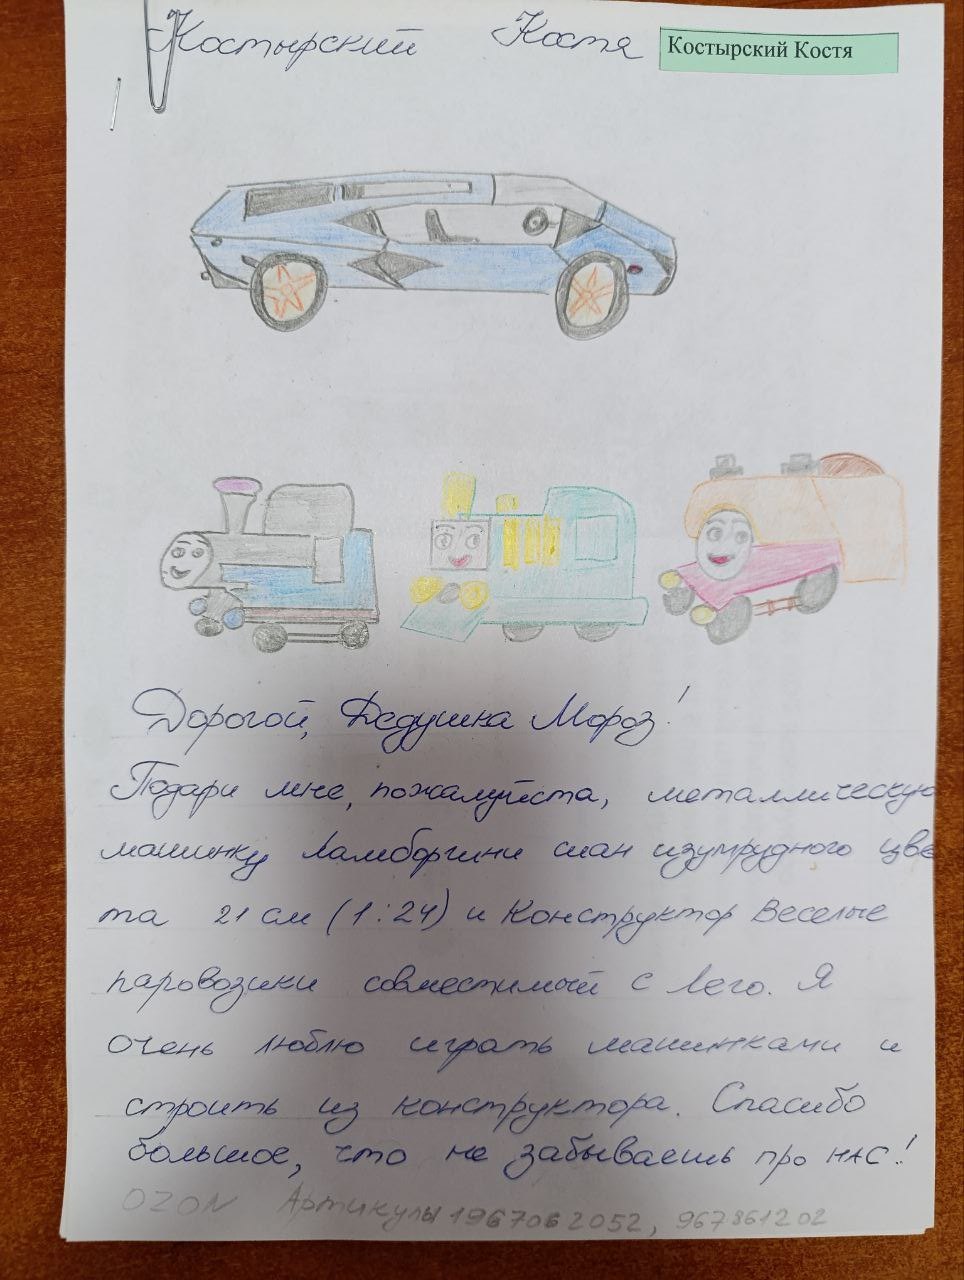 Костырский Костя
Костырский Костя
Дорогой, Дедушка Мороз!
Подари мне, пожалуйста, металлическую
машинку Ламборгини сиан изумрудного цве
та 21 см (1:24) и Конструктор Веселые
паровозики совместимый с Лего. Я
очень люблю играть машинками и
строить из конструктора. Спасибо
большое, что не забываешь про НАС!
OZON Артикулы 1967062052, 967861202